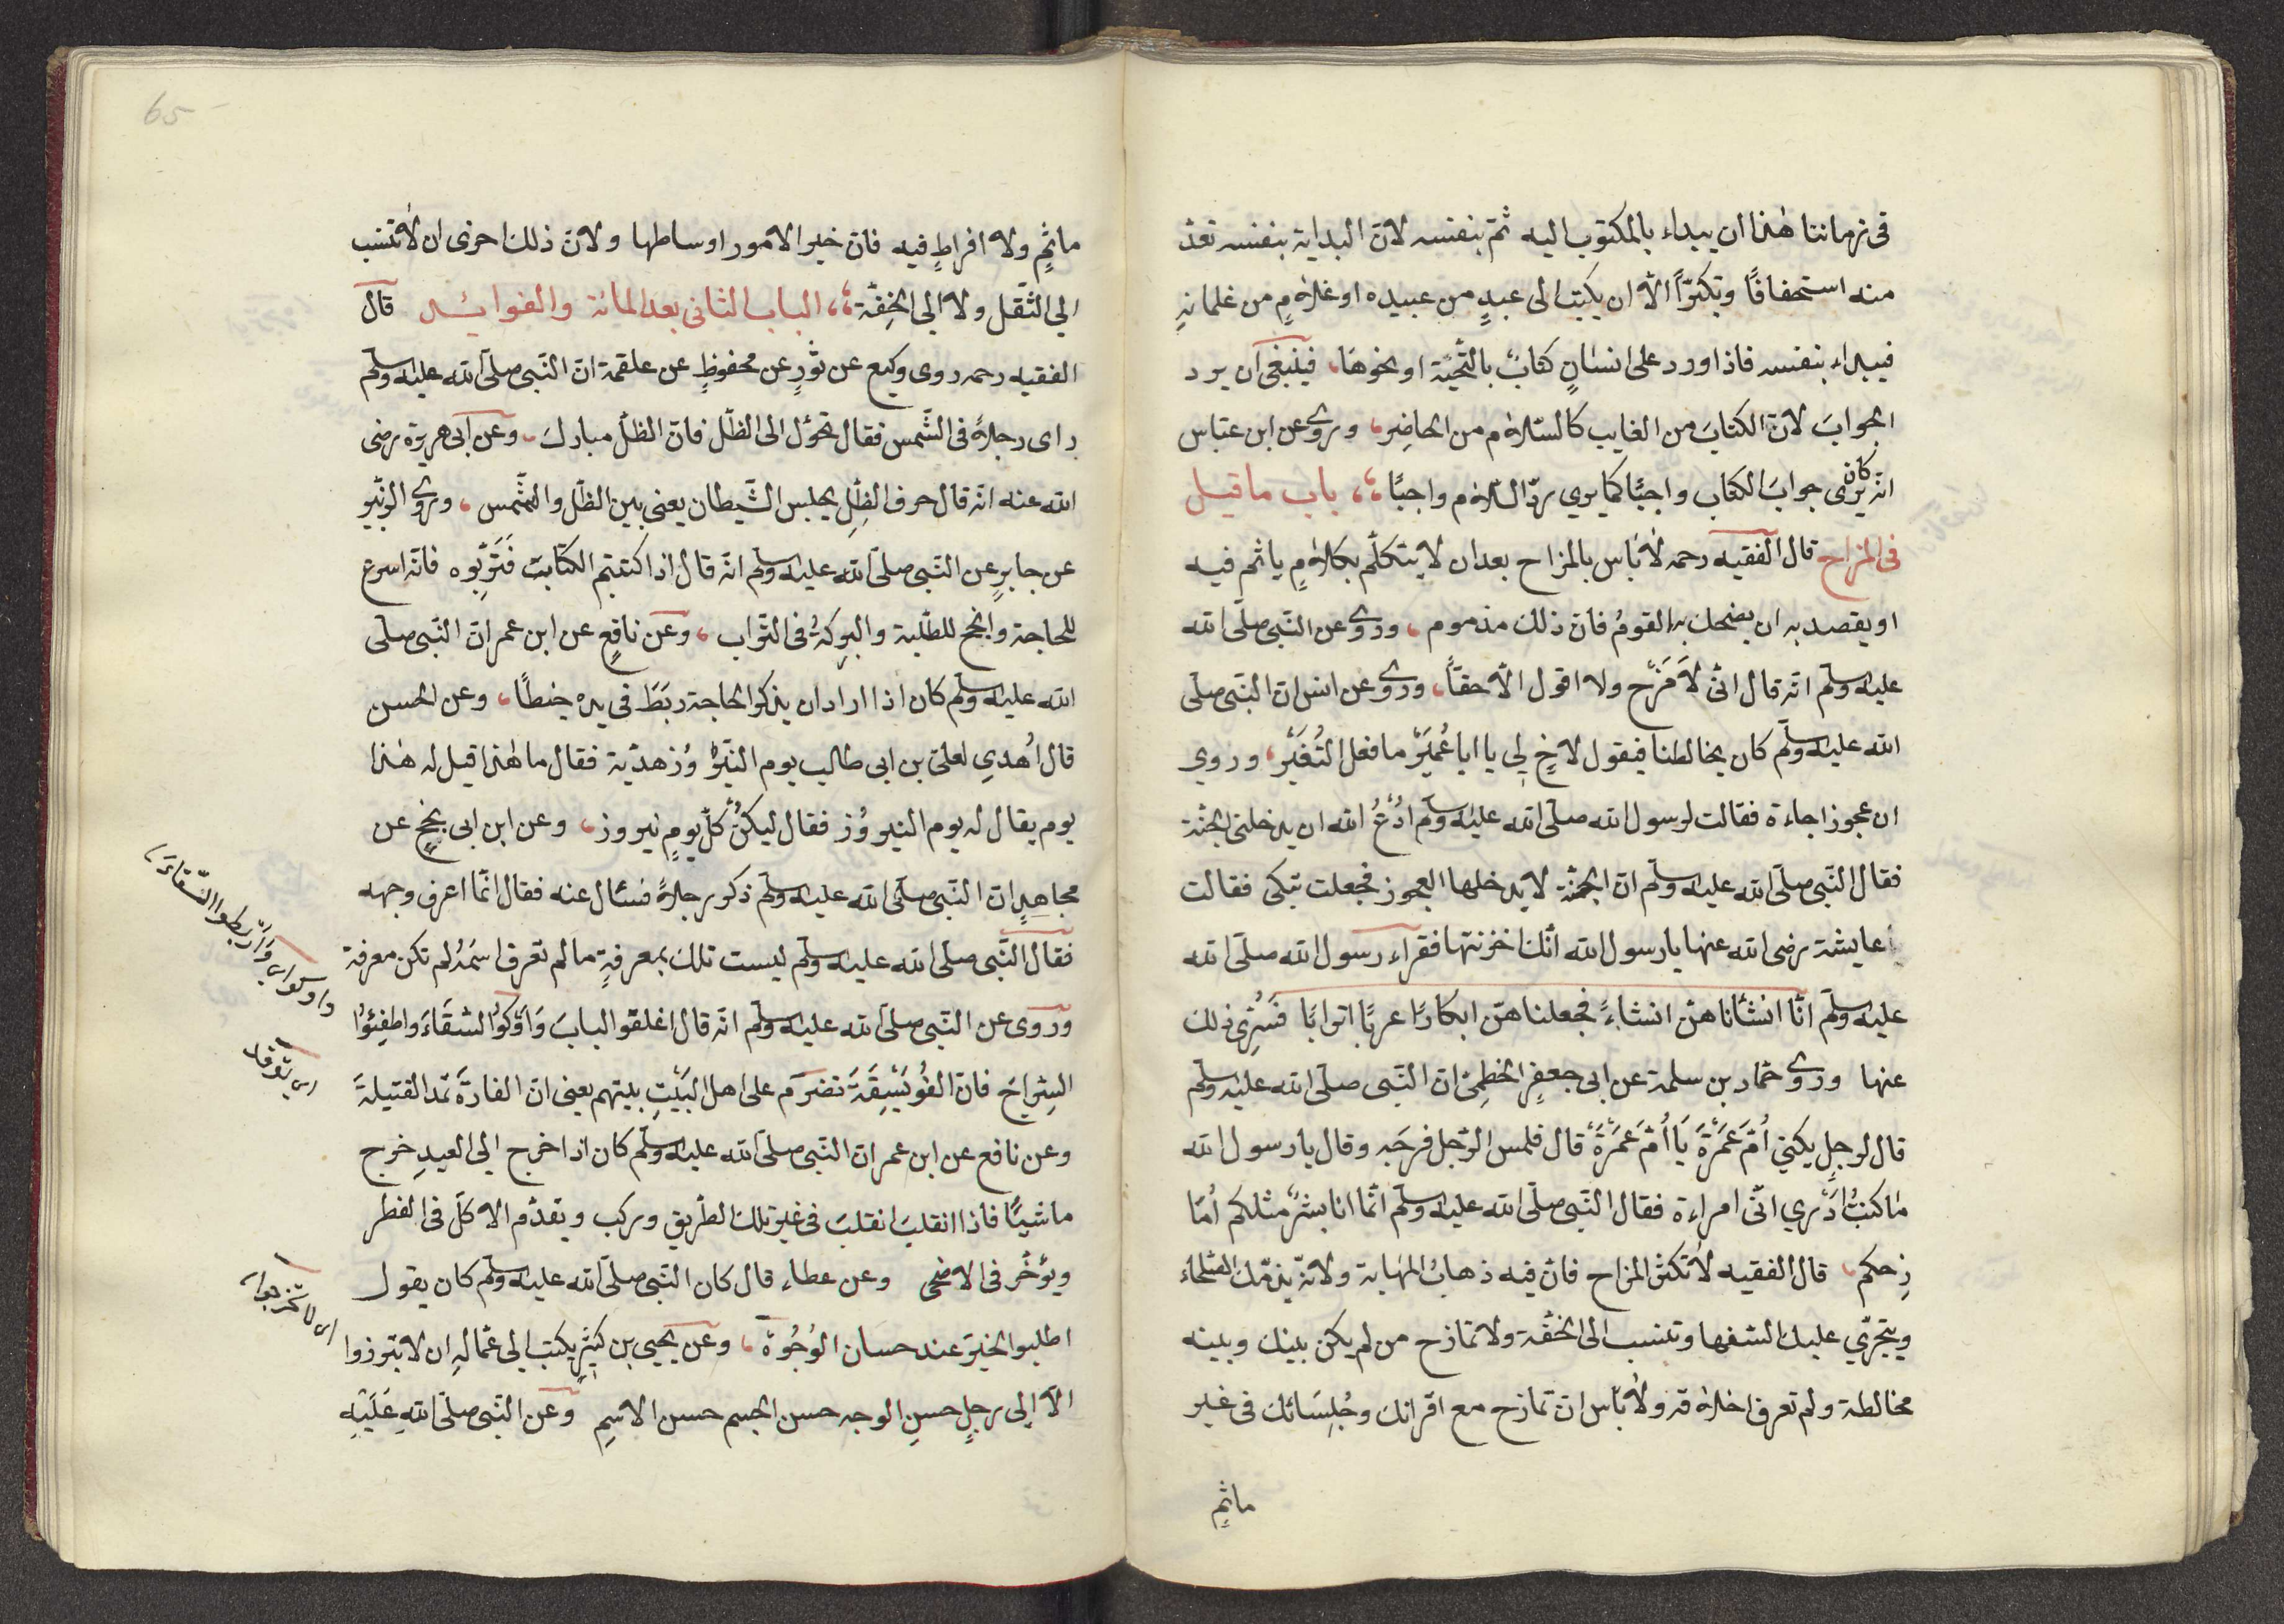 فى زماننا هذا ان يبداء بالمكتوب اليه ثم بنفسه لان البداية بنفسه تعدّ
منه استخفافًا وتكبّرًا الاّ ان يكتب الى عبدٍ من عبيده او غلامٍ من غلمانهِ
فيبداء بنفسه فاذا ورد على انسانٍ كتابٌ بالتّحيّة او نحوها، فينبغى ان يرد
الجوابَ لانّ الكتابَ من الغايب كالسّلام من الحاضِرِ، وروى عن ابن عبّاس
انّه كان يرى جوابَ الكتاب واجبًا كما يرى ردّ السّلام واجبًا،، باب ما قيل
فى المزاح قال الفقيه رحمه لا بَاس بالمزاح بعد ان لا يتكلّم بكلامٍ ياثم فيه
او يقصد به ان يضحك به القومُ فان ذلك مذموم، وروى عن النّبى صلّى الله
عليه وسلّم انّه قال انّى لَاَمْزَح ولا اقول الاّ حقّاً، وروى عن انس ان النّبى صلّى
الله عليه وسلّم كان يخالطنا فيقول لاخٍ لى يا ابا عُمَيْر ما فعل النُغَيْر، وروي
ان عجوزا جاءة فقالت لرسول الله صلّى الله عليه وسلّم ادْعُ الله ان يدخلنى الجنّة
فقال النّبى صلّى الله عليه وسلّم انّ الجنّة لا يدخلها العجوز فجعلت تبكى فقالت
عايشة رضى الله عنها يا رسول الله انّك احزنتها فقراء رسول الله صلّى الله
عليه وسلّم انّا انشأناهنّ انشاءً فجعلناهنّ ابكارًا عربًا اترابًا فَسُرِّى ذلك
عنها وروى حمّاد بن سلمة عن ابى جعفرٍ الخطمِىّ انّ النّبى صلّى الله عليه وسلّم
قال لرجلٍ يكنى اُمَّ عَمْرَةَ يَا اُمَّ عَمْرَةَ قال فلمس الرّجل فرجَه وقال يا رسول الله
مَا كنتُ اَدْري انّى امراءة فقال النّبى صلّى الله عليه وسلّم انّما انا بشرٌ مثلكم اُمَا
زِحكم، قال الفقيه لا تكثر المزاح فانّ فيه ذهابُ المهابة ولانّه يذمّك الصّلحاء
ويتجرّي عليك السّفهاء وتنسب الى الخفّة ولا تمازح من لم يكن بينك وبينه
مخالطة ولم تعرف اخلاقه ولا بَاس ان تمازح مع اقرانك وجُلسَائك فى غير
ماثمٍ
65
ماثمٍ ولا افراطٍ فيه فانّ خير الامور اوساطها ولانّ ذلك احرى ان لا تنسب
الي الثّقل ولا الي الخِفّة،، الباب الثانى بعد المائة والفوائد قال
الفقيه رحمه روى وكيع عن ثورٍ عن محفوظٍ عن علقمة انّ النّبى صلّى الله عليه وسلّم
راى رجلاً فى الشّمس فقال تحوّل الى الظّل فانّ الظّل مبارك، وعن ابى هريرة رضى
الله عنه انّه قال حرف الظِلِ يجلس الشّيطان يعنى بين الظّل والشّمس، وروى الزبَير
عن جابرٍ عن النّبى صلّى الله عليه وسلّم انّه قال اذا كتبتم الكتابَ فَتَرّبُوه فانّه اسرع
للحاجة وانجح للطّلبة والبركةُ فى التّراب، وعن نافعٍ عن ابن عمر انّ النّبى صلّى
الله عليه وسلّم كان اذا اراد ان يذكر الحاجة ربَطَ فى يده خيطًا، وعن الحسن
قال اُهدي لعلىّ بن ابى طالب يوم النَيرُوز هديّة فقال ما هذا قيل له هذا
يوم يقال له يوم النيروُز فقال ليكُنْ كلّ يومٍ نيروز، وعن ابن ابى نجيحٍ عن
مجاهدٍ انّ النّبى صلّى الله عليه وسلّم ذكر رجلاً فسئال عنه فقال انّما اعرف وجهه
فقال النّبى صلّى الله عليه وسلّم ليست تلك بمعرفةٍ ما لم تعرف اسمَهُ لم تكن معرفة
وروى عن النّبى صلّى الله عليه وسلّم انّه قال اغلقوا البابَ وَاَوْكُوا السقَاءَ واطفِئوُا
السِّراجَ فانّ الفُوَيْسِقَةَ تضرَم على اهل البَيْتِ بيتهم يعنى انّ الفارةَ تمّد الفتيلةَ
وعن نافع عن ابن عمر انّ النّبى صلّى الله عليه وسلّم كان اذا خرج الي العيدِ خرج
ماشيًا فاذا انقلبَ انقلبَ فى غير تلك الطّريق وركب ويقدّم الاكلَ فى الفطر
ويؤخّر فى الاضحى وعن عطاء قال كان النّبى صلّى الله عليه وسلّم كان يقول
اطلبوا الخيرَ عند حسان الوُجُوة، وعن يحيى بن كثيرٍ يكتب الي عمّالهِ ان لا تبرزوا
الاّ الى رجلٍ حسنِ الوجه حسن الجسم حسن الاسمِ وعن النّبى صلّى اللهِ عَلَيْهِ
واوكوا اى واربطوا السّقاءَ
اى توقد
اى لا تخرجوا